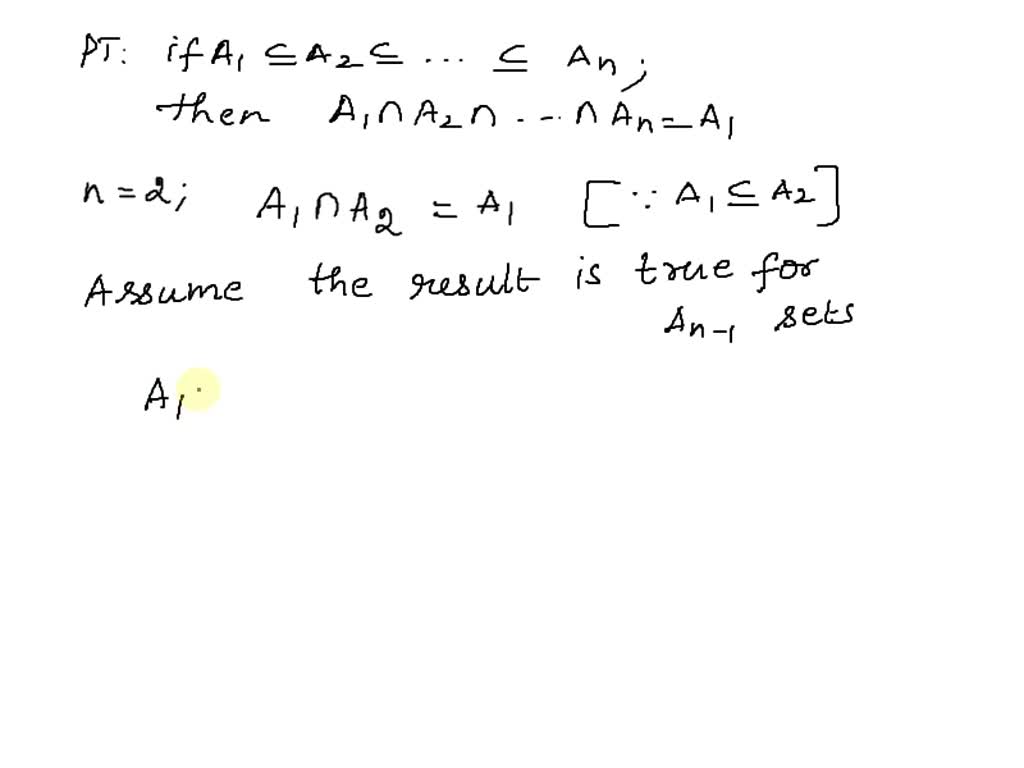 PT: if A₁ ⊆ A₂ ⊆ ... ⊆ Aₙ;
then A₁ ∩ A₂ ∩ ... ∩ Aₙ = A₁
n = 2; A₁ ∩ A₂ = A₁ [∵ A₁ ⊆ A₂]
Assume the result is true for
Aₙ₋₁ sets
A₁